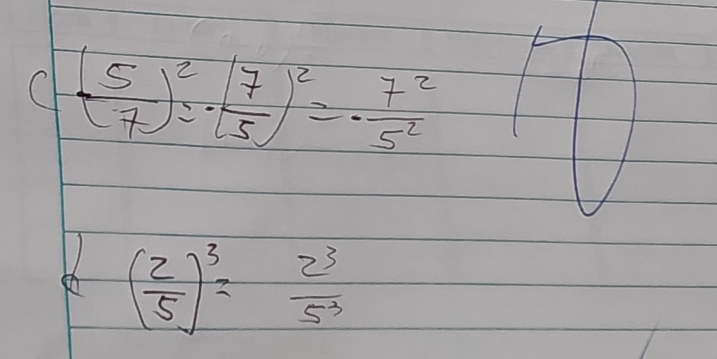 c (5/-7)^2 = -(7/5)^2 = - 7^2/5^2
d (2/5)^3 = 2^3/5^3